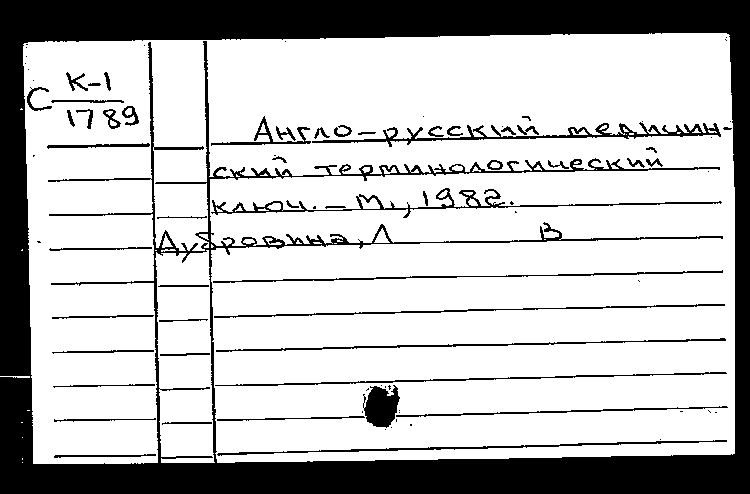 С К-1
1789
Англо-русский медицин-
ский терминологический
ключ. - М., 1982.
Дубровина, Л В